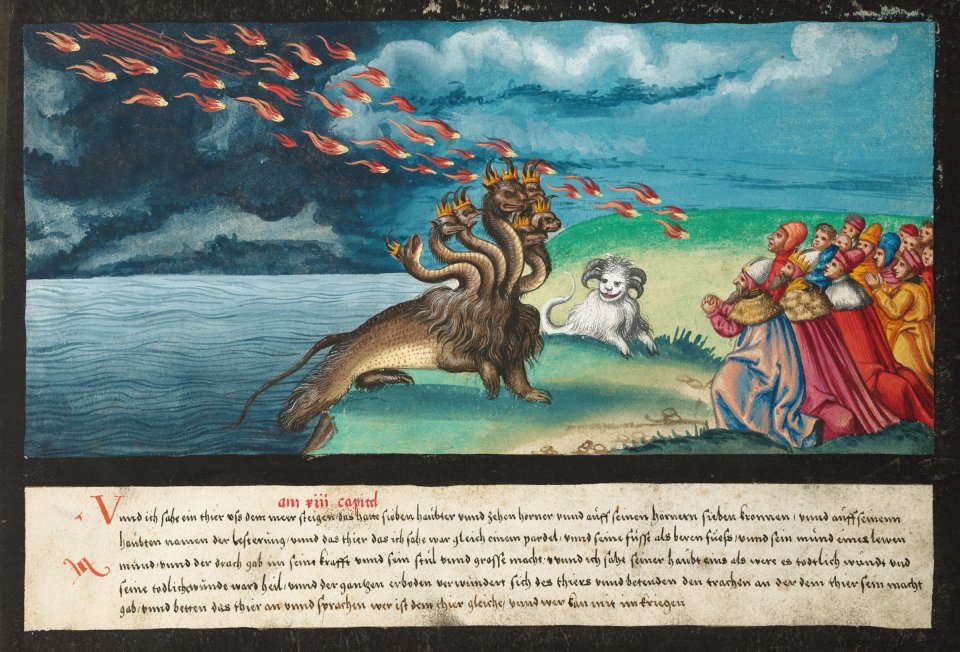 am xiii capitel
Vnnd ich sahe ein thier vss dem meer steigen das hatte sieben haubter vnnd zehen horner vnnd auff seinen hörnern sieben kronnen / vnnd auff seinenn
haubten namen der lesterung / vnnd das thier das ich sahe war gleich einem pardel / vnnd seine füsse als beren füess / vnnd sein mund eines lewen
mund / vnnd der drach gab im seine krafft vnnd sein stul vnnd grosse macht / vnnd ich sahe seiner haubt eins als were es todtlich wundt vnd
seine todlichewunde ward heil / vnnd der gantzen erboden verwundert sich des thiers vnnd betenden den trachen an der dem thier sein macht
gab / vnnd betten das thier an vnnd sprachen wer ist dem thier gleiche / vnnd wer kan mit im kriegen